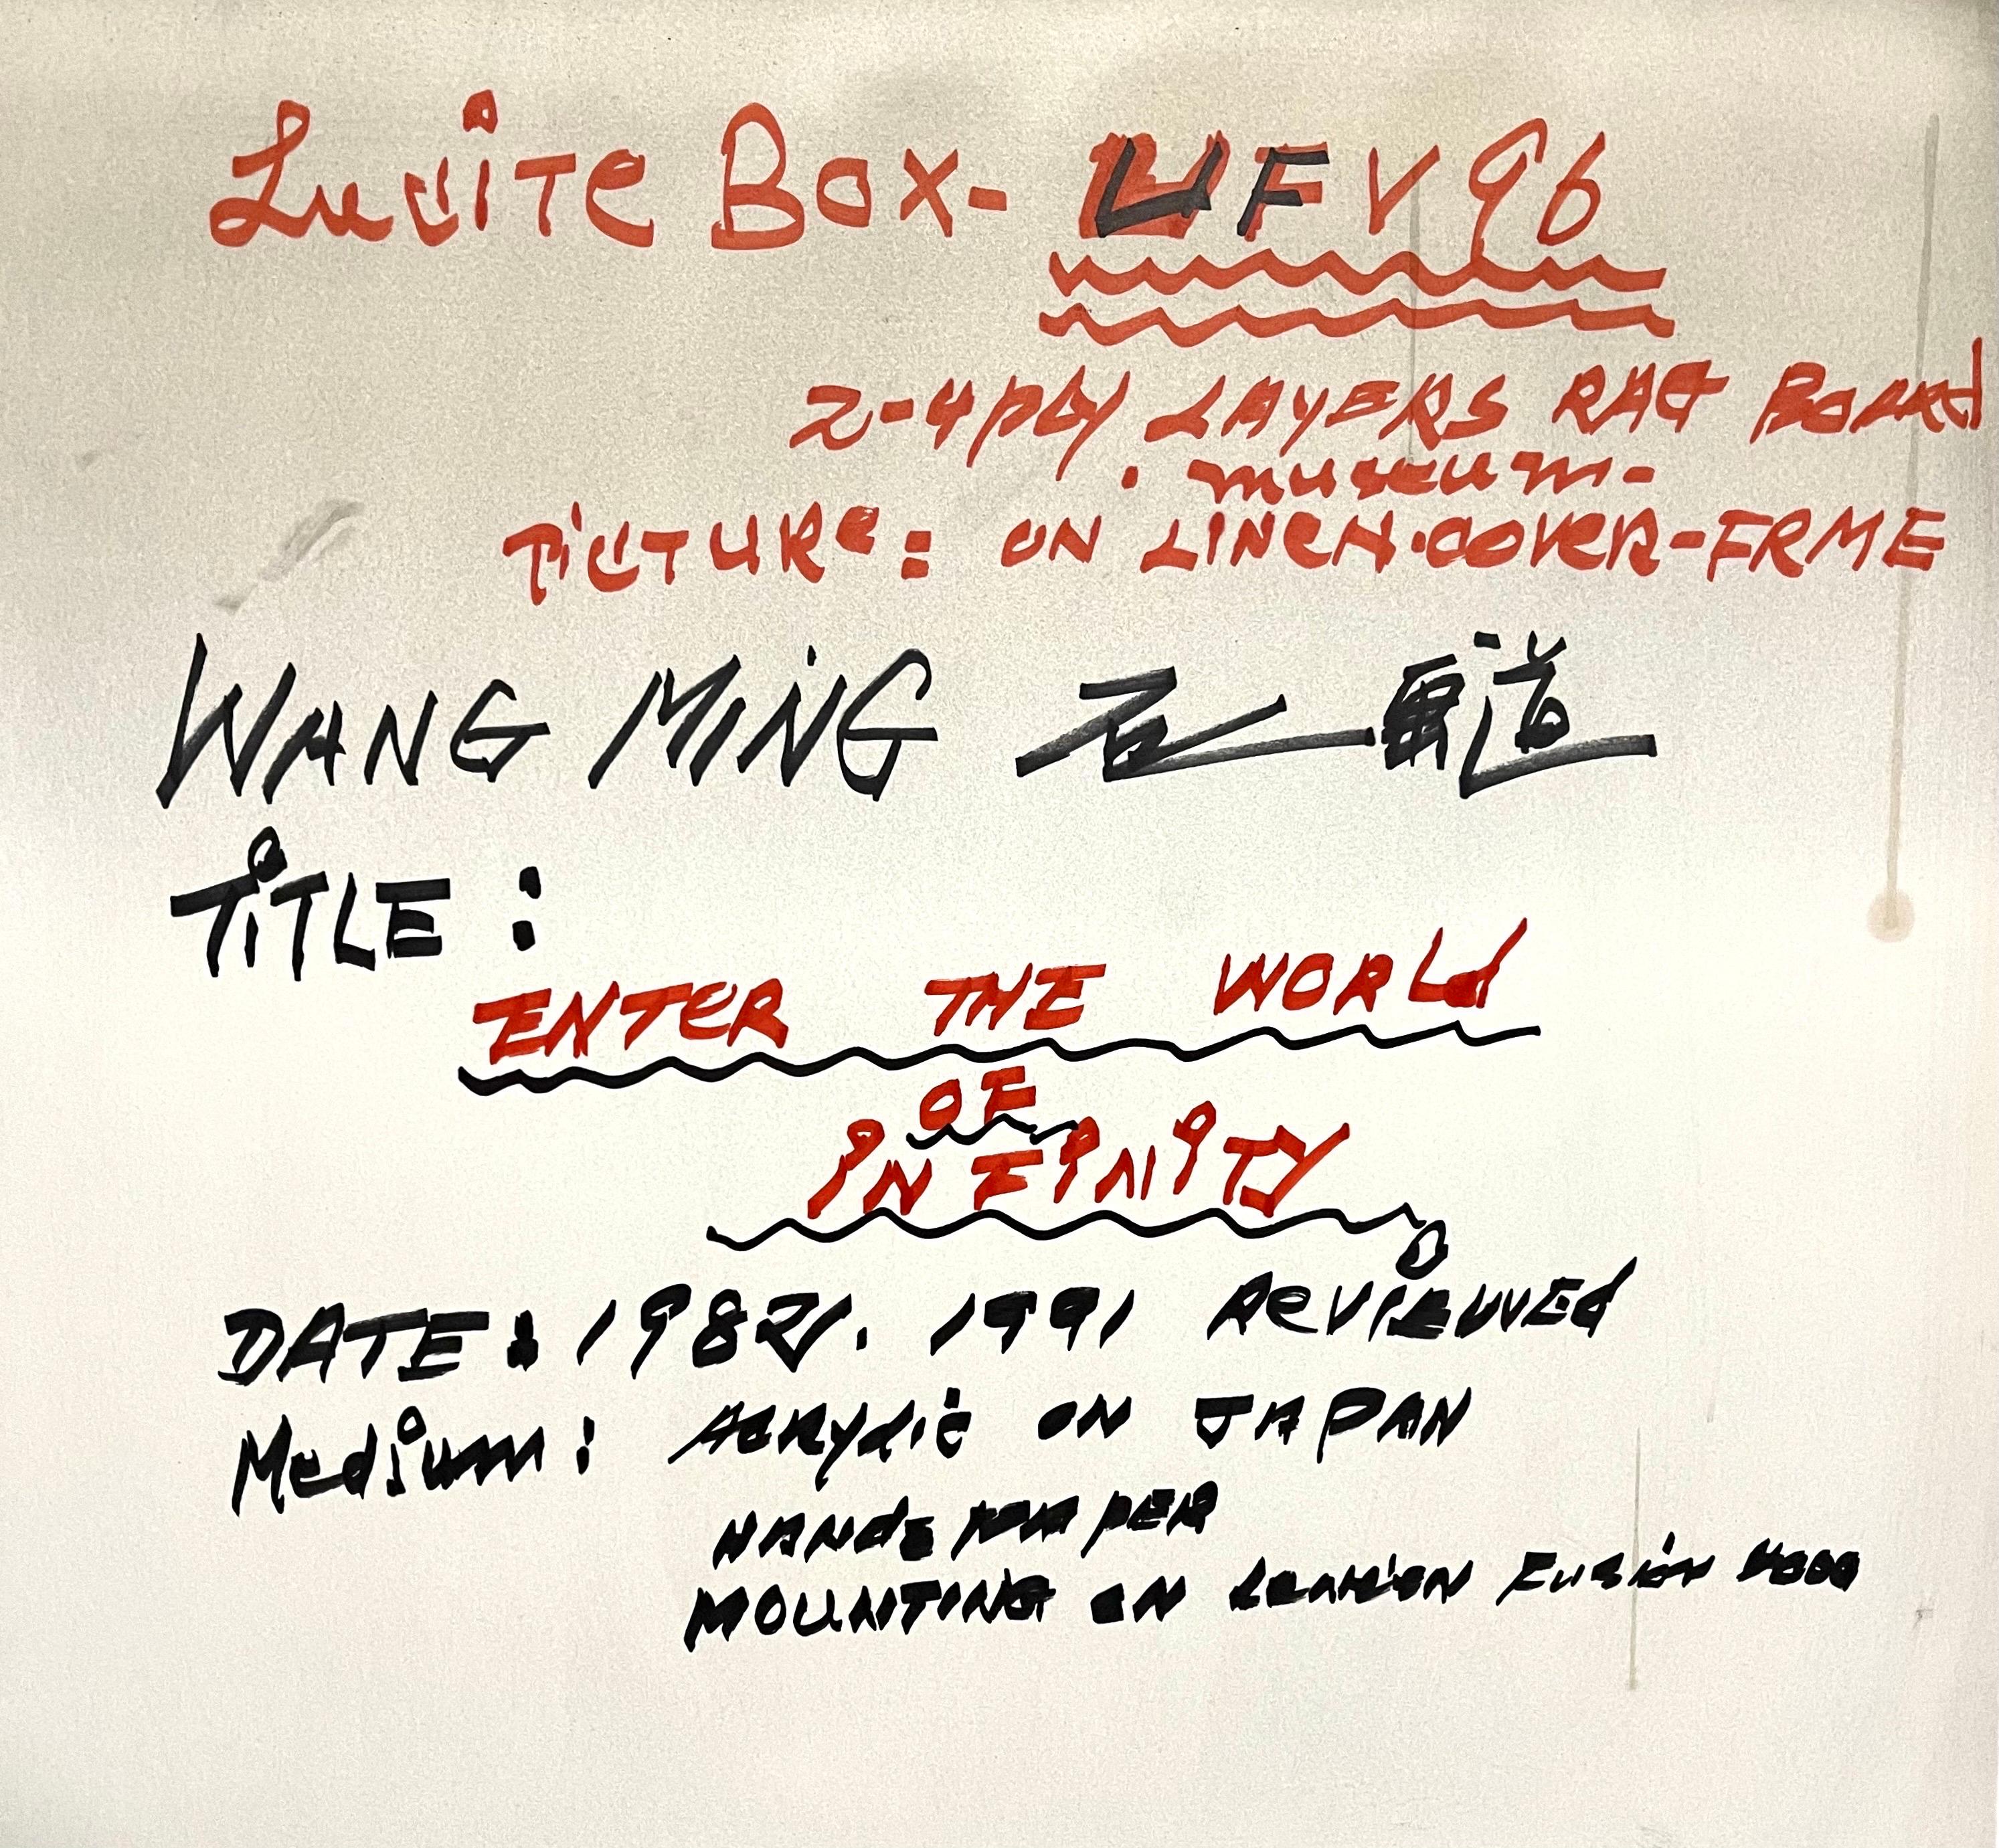 Lucite Box- UFV96
2-4ply LAYERS RAG Board
. museum-
PICTURE: ON LINEN.COVER-FRME
WANG MING
TITLE:
ENTER THE WORLD
OF
INFINITY
DATE: 1982. 1991 REVIEWED
Medium: Acrylic ON JAPAN
HANDE PAPER
MOUNTING ON Fusion 4000